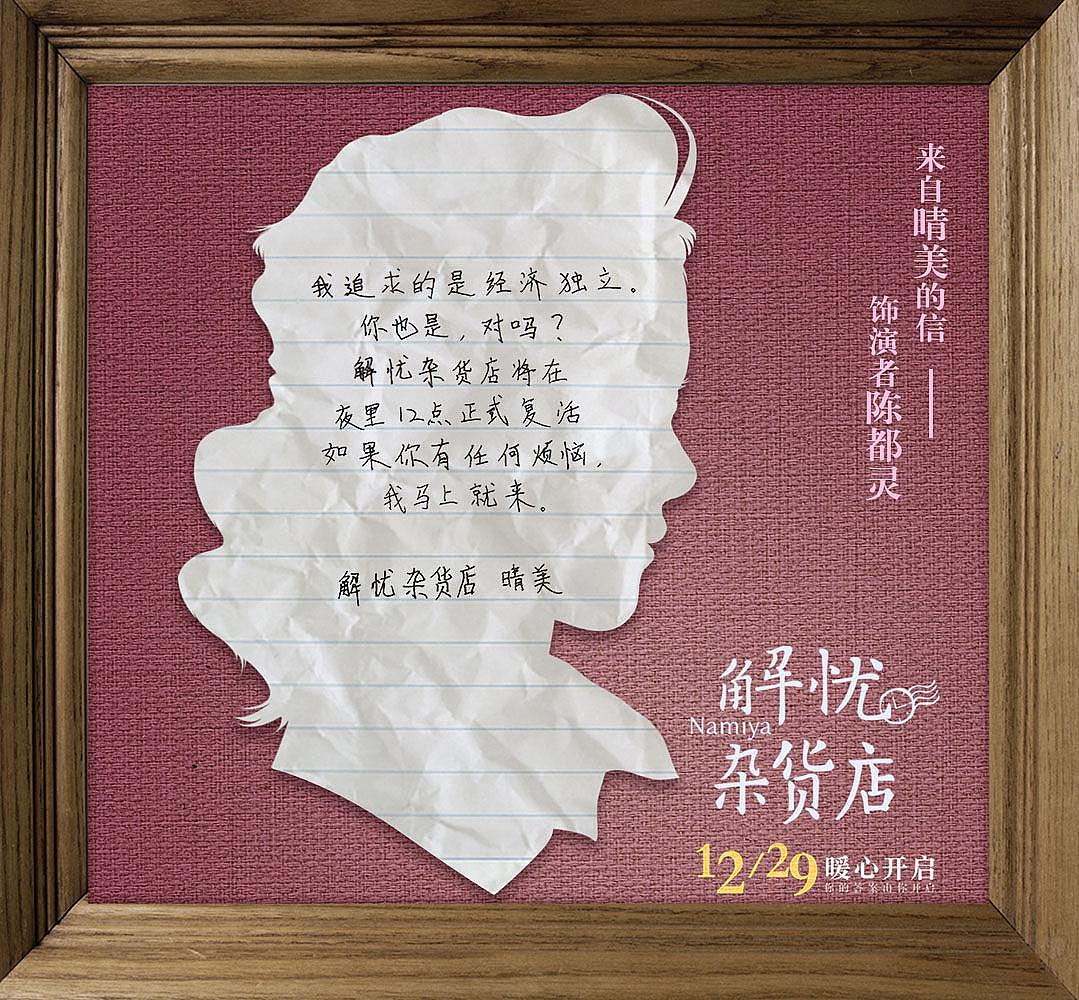 来自晴美的信——
饰演者陈都灵
我追求的是经济独立。
你也是，对吗？
解忧杂货店将在
夜里12点正式复活
如果你有任何烦恼，
我马上就来。
解忧杂货店 晴美
解忧
Namiya
杂货店
12/29 暖心开启
你的答案由你开启